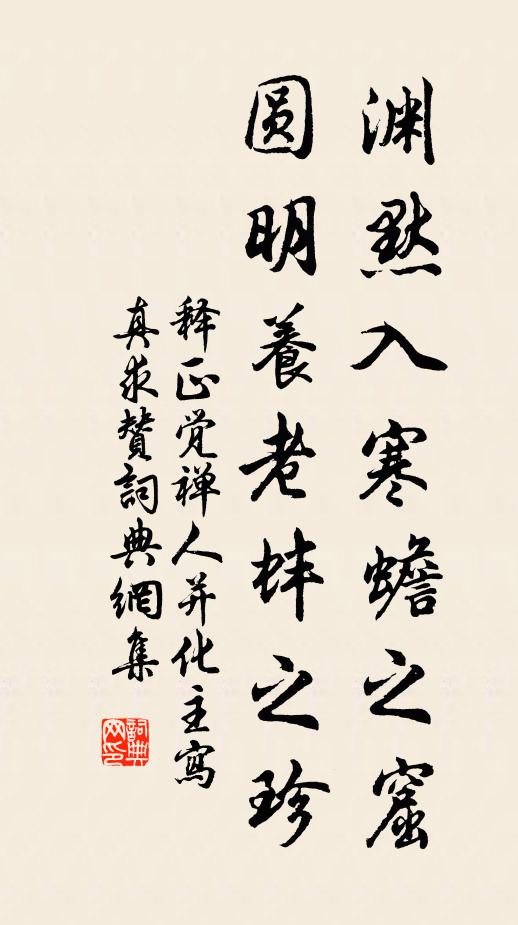 渊默入寒蟾之窟
圆明養老蚌之珍
释正觉禅人并化主寫
真求賛詞典網集
詞典网印